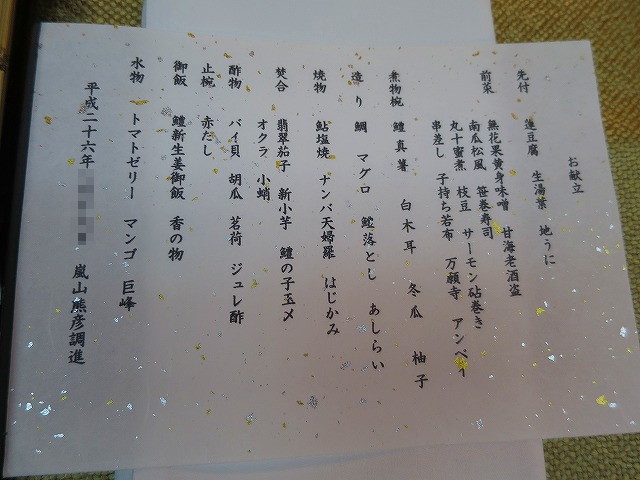 お献立
先付 蓮豆腐 生湯葉 地うに
前菜 無花果黄身味噌 甘海老酒盗
南瓜松風 笹巻寿司
丸十蜜煮 枝豆 サーモン砧巻き
串差し 子持ち若布 万願寺 アンペイ
煮物椀 鱧真薯 白木耳 冬瓜 柚子
造り 鯛 マグロ 鱧落とし あしらい
焼物 鮎塩焼 ナンバ天婦羅 はじかみ
焚合 翡翠茄子 新小芋 鱧の子玉〆
オクラ 小蛸
酢物 バイ貝 胡瓜 茗荷 ジュレ酢
止椀 赤だし
御飯 鱧新生姜御飯 香の物
水物 トマトゼリー マンゴ 巨峰
平成二十六年 嵐山熊彦調進